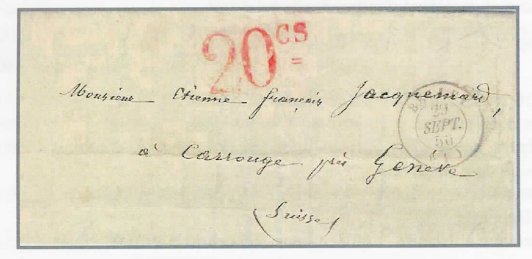 20 CS
=
Monsieur Etienne françois Jacquemard,
29
SEPT.
à Carrouge près Genève
(Suisse)